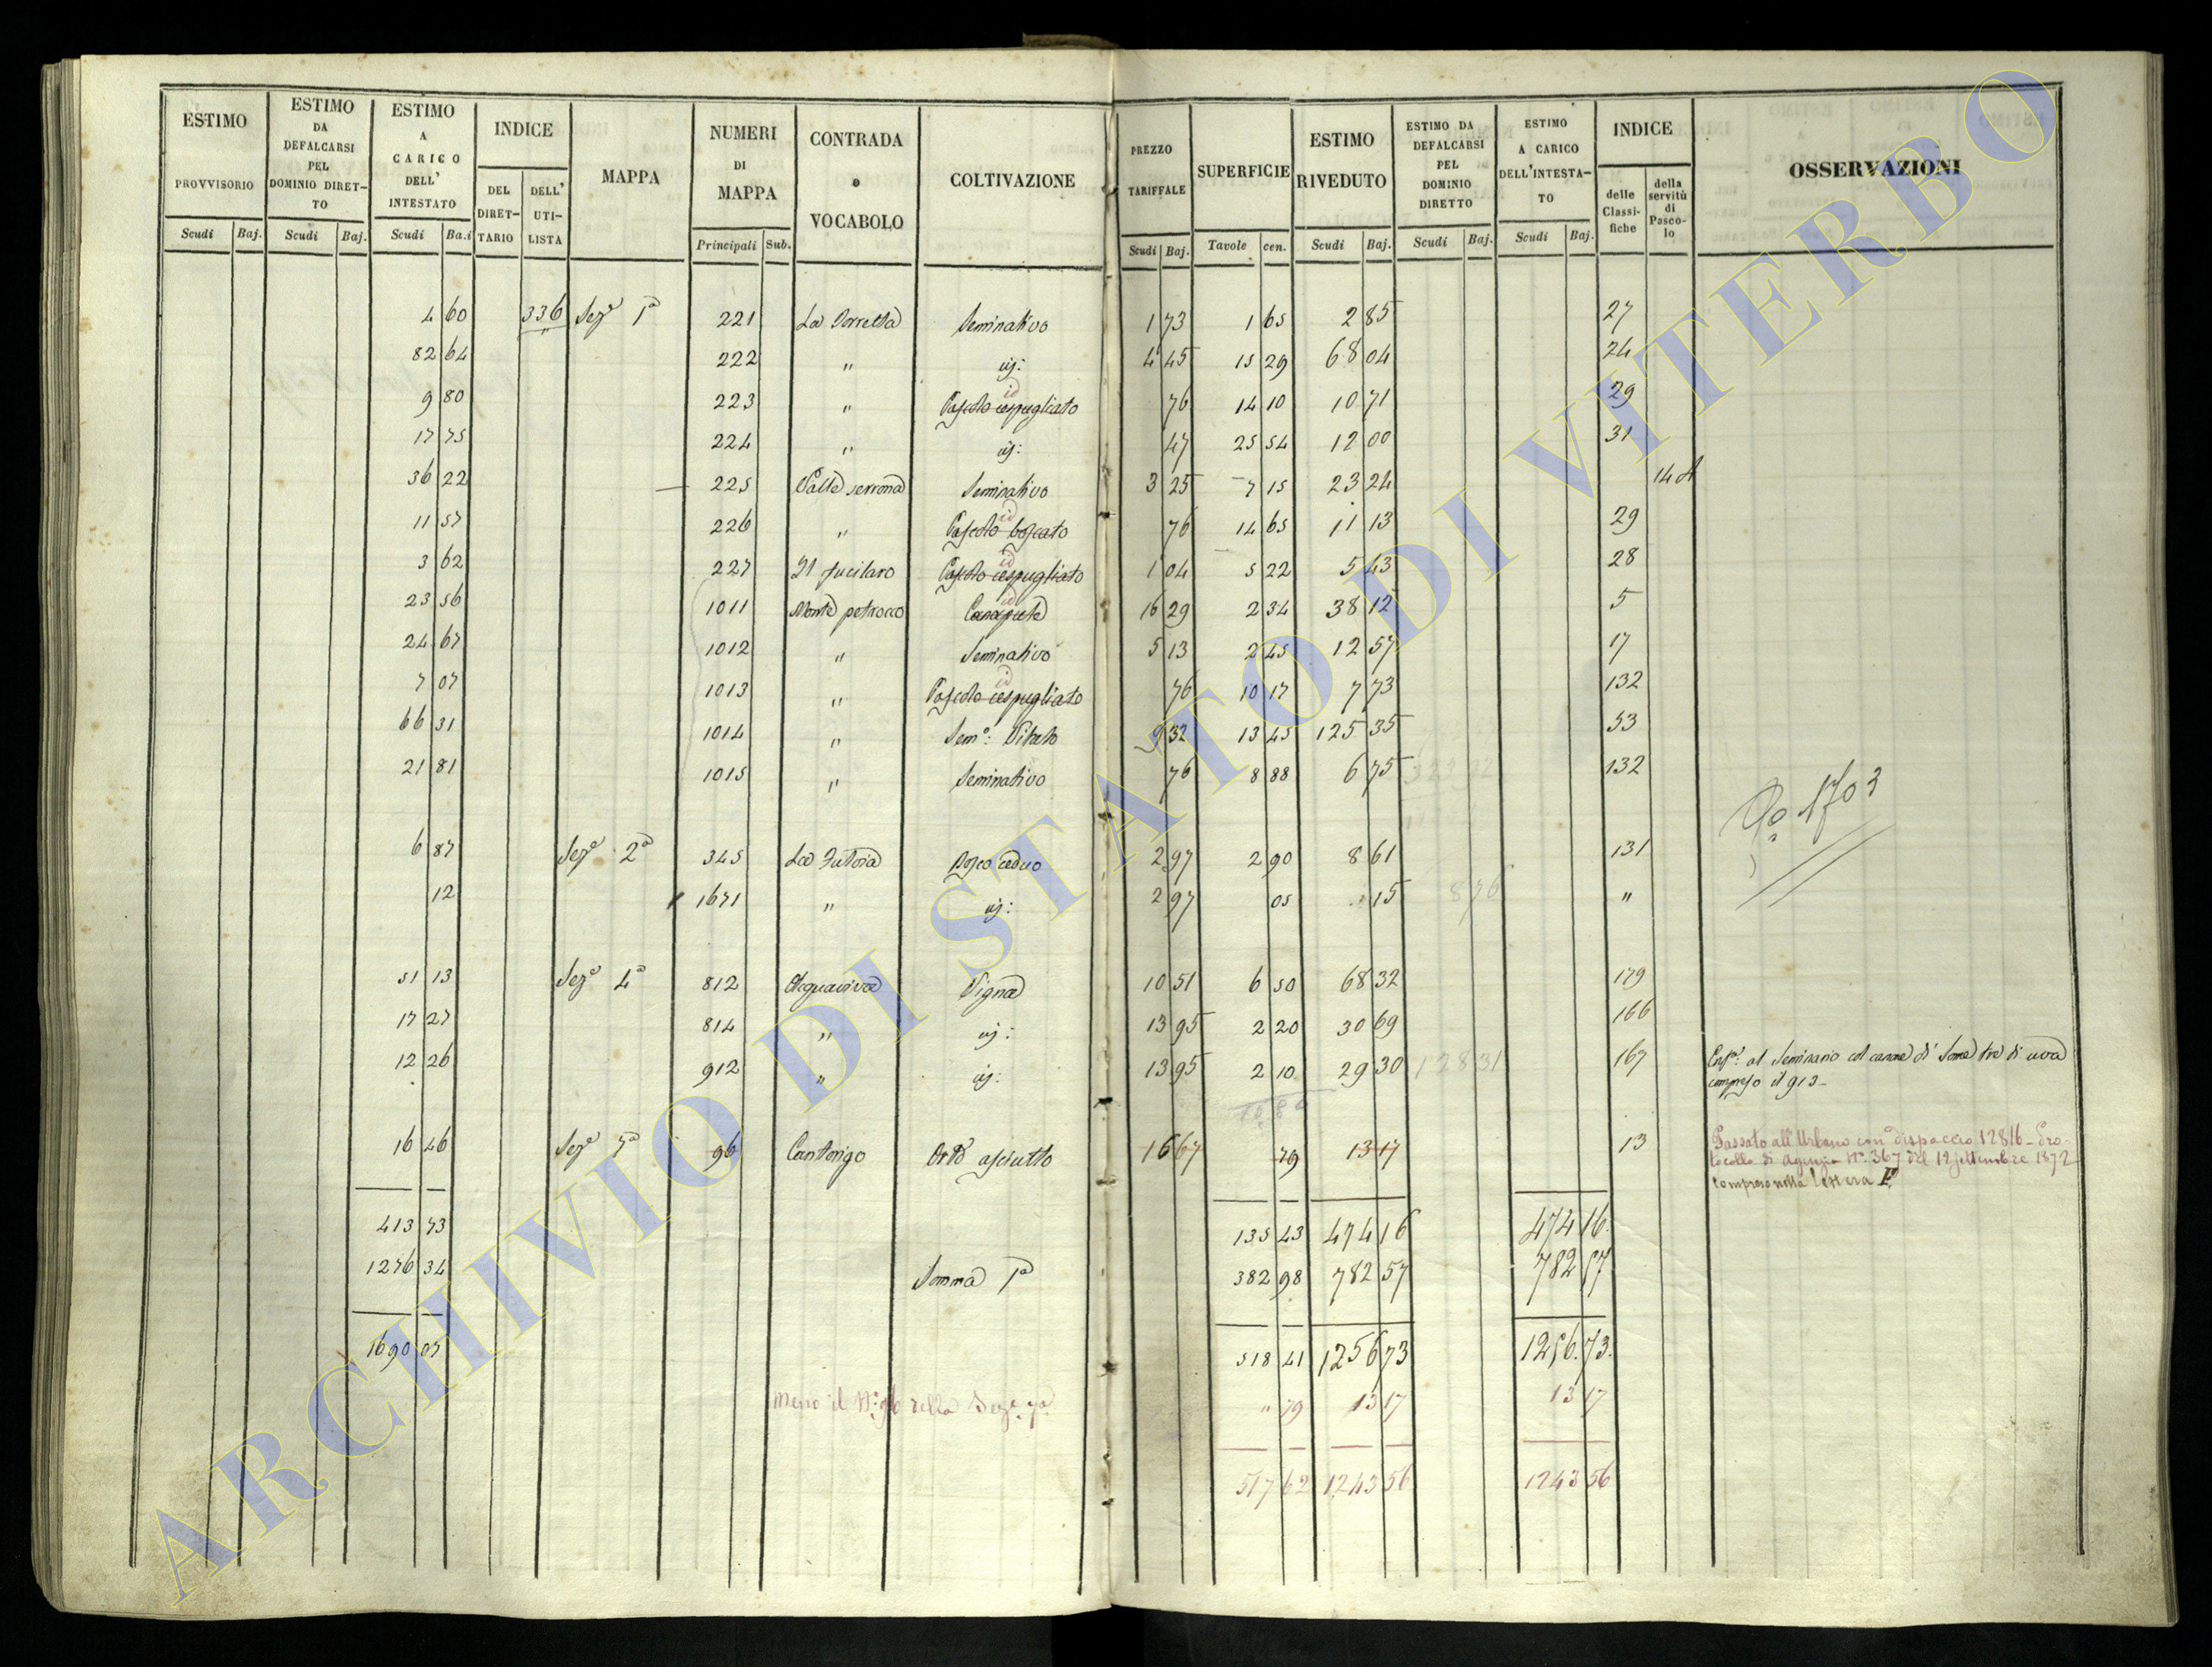 ESTIMO PROVVISORIO Scudi Baj.
ESTIMO DA DEFALCARSI PEL DOMINIO DIRET-TO Scudi Baj.
ESTIMO A CARICO DELL' INTESTATO Scudi Ba.i
INDICE DEL DIRET-TARIO DELL' UTI-LISTA
MAPPA
NUMERI DI MAPPA Principali Sub.
CONTRADA o VOCABOLO
COLTIVAZIONE
PREZZO TARIFFALE Scudi Baj.
SUPERFICIE Tavole cen.
ESTIMO RIVEDUTO Scudi Baj.
ESTIMO DA DEFALCARSI PEL DOMINIO DIRETTO Scudi Baj.
ESTIMO A CARICO DELL'INTESTA-TO Scudi Baj.
INDICE delle Classi-fiche della servitù di Pasco-lo
OSSERVAZIONI
4 60 336 Sez.e 1a 221 La Torretta Seminativo 1 73 1 65 2 85 27
82 64 222 " id: 4 45 15 29 68 04 24
9 80 223 " Pascolo cespugliato id 76 14 10 10 71 29
17 75 224 " id: 47 25 54 12 00 31
36 22 — 225 Valle serrona Seminativo 3 25 7 15 23 24 14 A
11 57 226 " Pascolo boscato id 76 14 65 11 13 29
3 62 227 Il fucilaro Pascolo cespugliato id 1 04 5 22 5 43 28
23 56 1011 Monte petrocco Canapule id 16 29 2 34 38 12 5
24 67 1012 " Seminativo 5 13 2 45 12 57 17
7 07 1013 " Pascolo cespugliato id 76 10 17 7 73 132
66 31 1014 " Sem.o: Vitato 9 32 13 45 125 35 53
21 81 1015 " Seminativo 76 8 88 6 75 132
1703
6 87 Sez.e 2a 345 La Tutoia Bosco ceduo 2 97 2 90 8 61 131
12 1671 " id: 2 97 05 15 8 76 "
51 13 Sez.e 4a 812 Acquaviva Vigna 10 51 6 50 68 32 179
17 27 814 " id: 13 95 2 20 30 69 166
12 26 912 " id: 13 95 2 10 29 30 128 31 167 al Seminario col canone di Some tre di uva
compreso il 913 -
16 46 Sez.e 7a 96 Cantorigo Orto asciutto 16 67 79 13 17 13 Passato all'Urbano con dispaccio 12816 - Pro-
tocollo di Agenzia N.o 367 del 12 settembre 1872
compreso nella lettera F.
413 73 135 43 474 16 474 16.
1276 34 Somma 1a 382 98 782 57 782 57
1690 07 518 41 1256 73 1256.73.
Meno il N.o 96 della Sez.e 7a " 79 13 17 13 17
517 62 1243 56 1243 56
ARCHIVIO DI STATO DI VITERBO